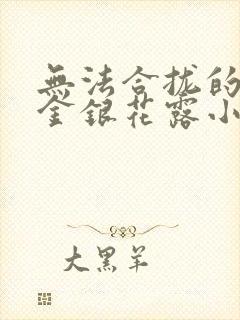 無法合拢的
金銀花露小
大黑羊